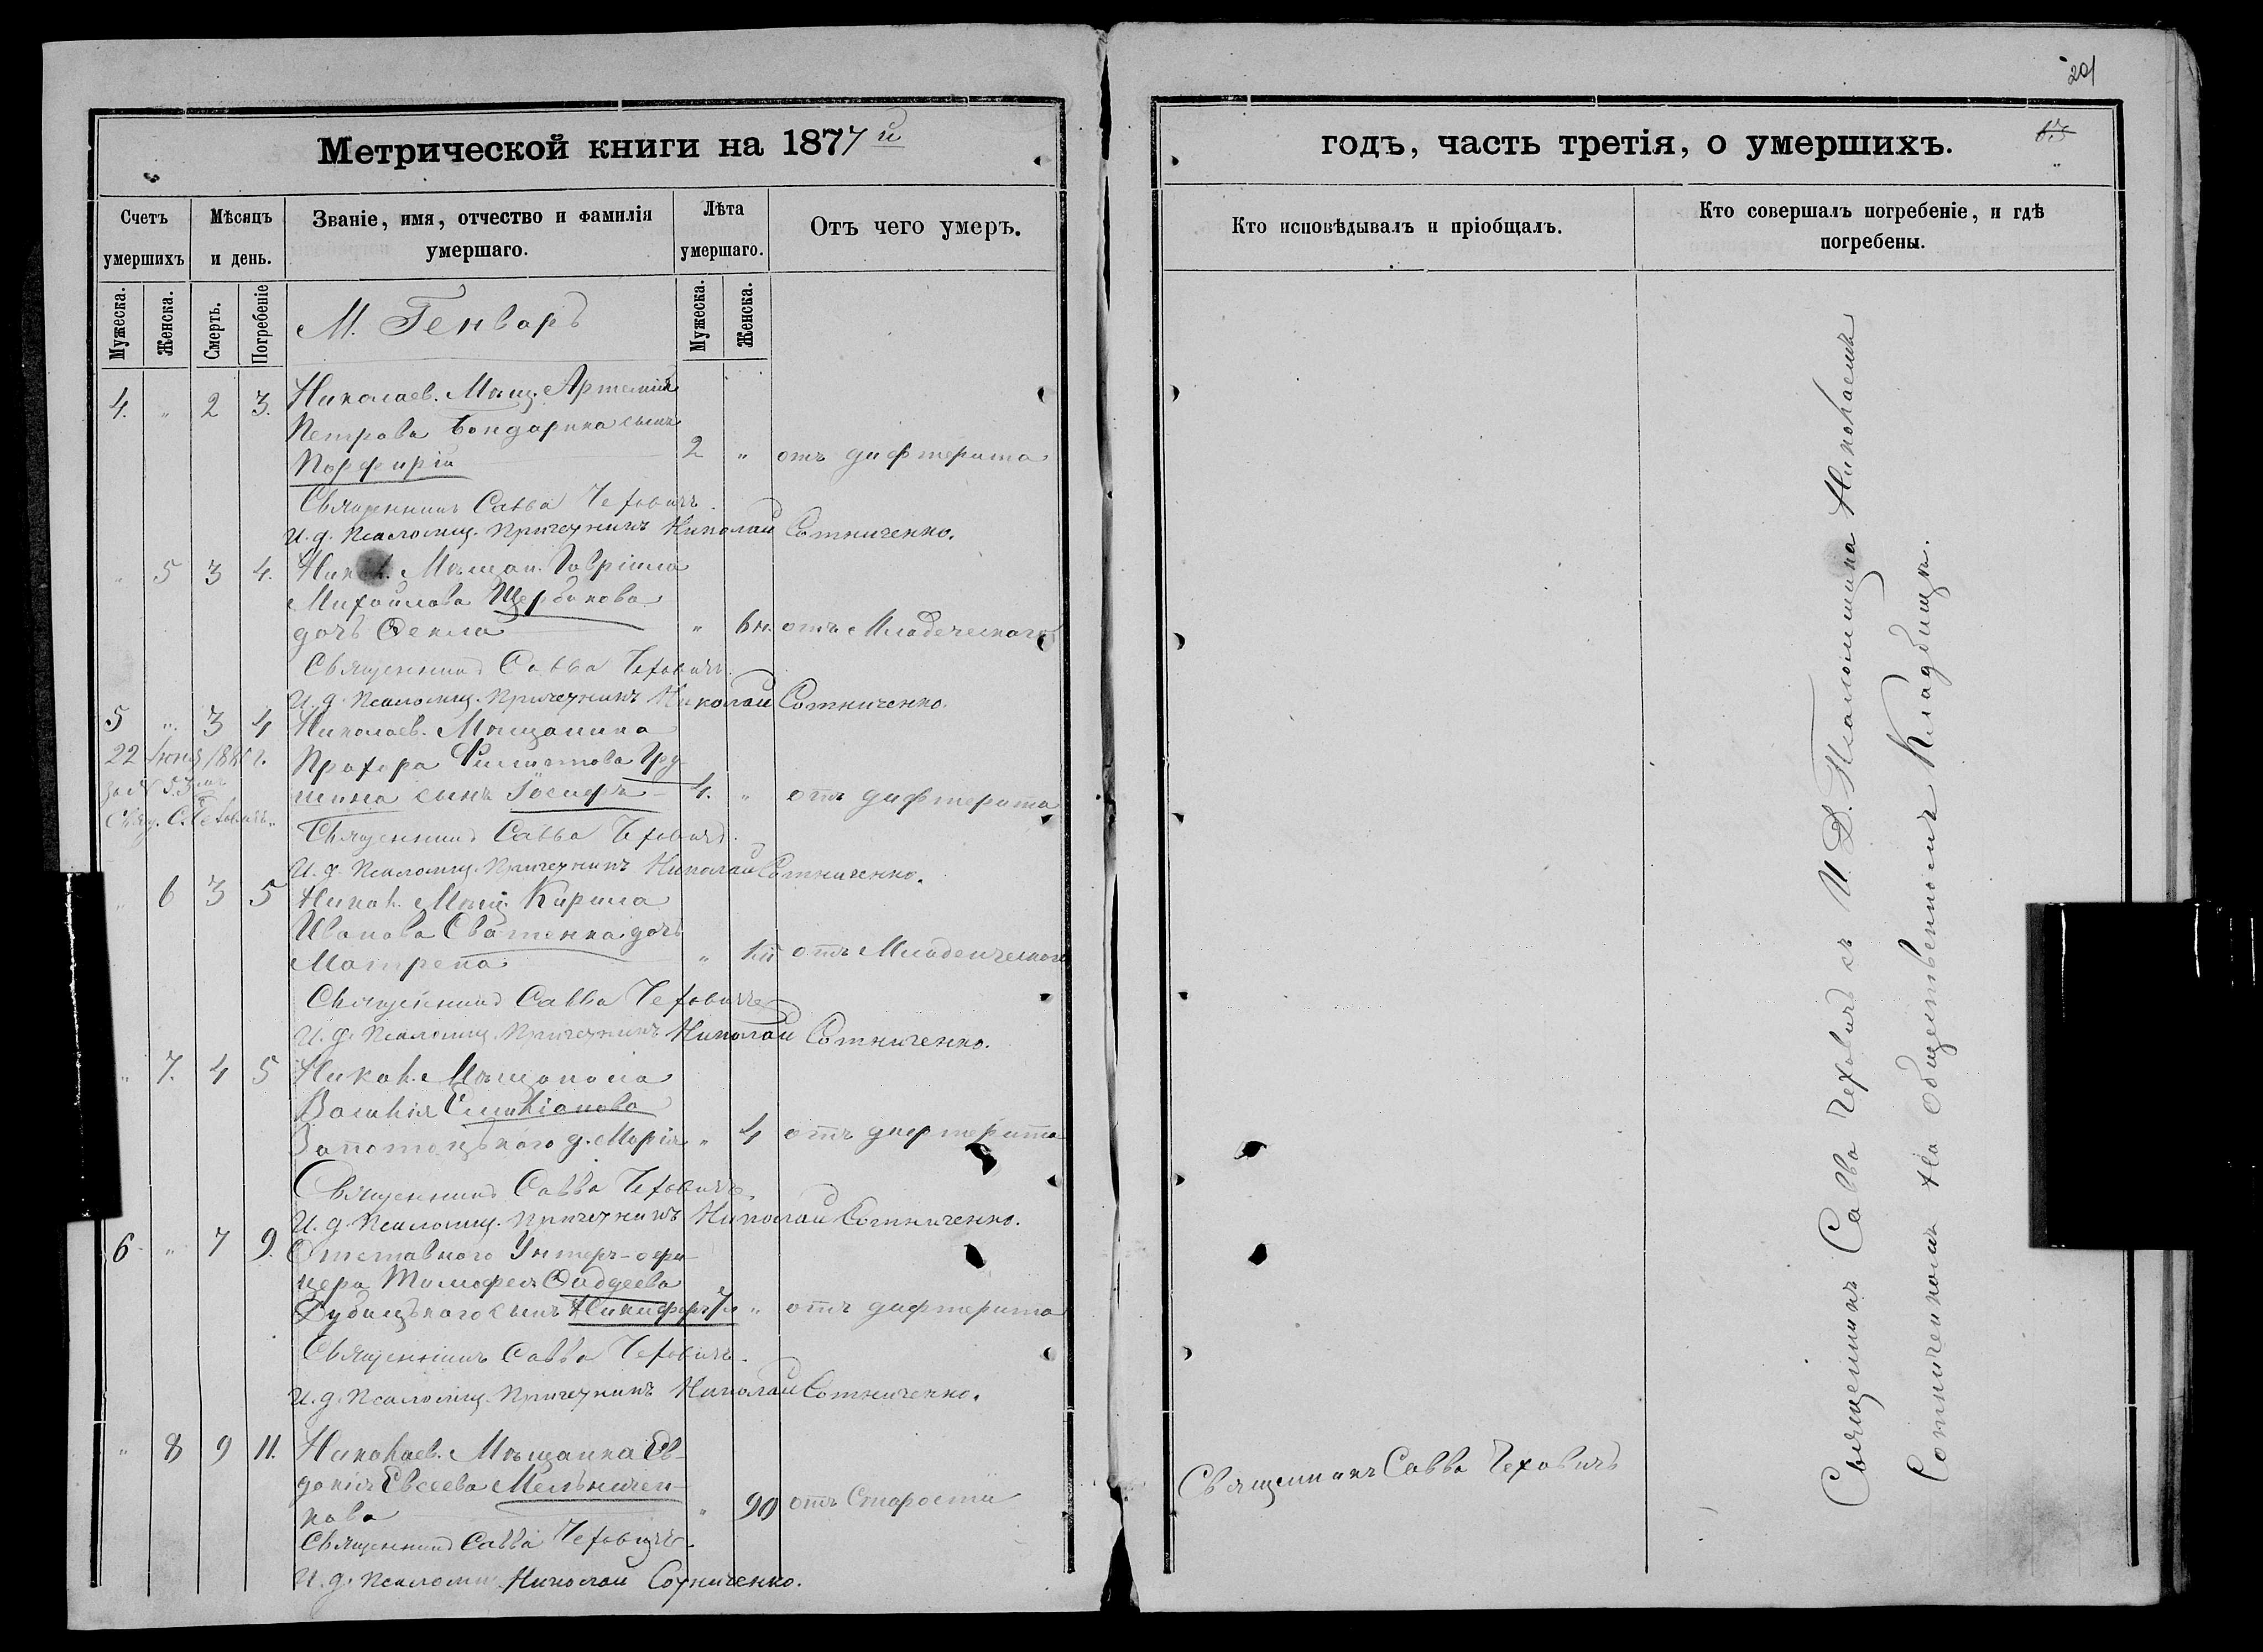 201
Метрической книги на 1877й
годъ, часть третія, о умершихъ.
Счетъ умершихъ
Мѣсяцъ и день.
Званіе, имя, отчество и фамилія умершаго.
Лѣта умершаго.
Отъ чего умеръ.
Кто исповѣдывалъ и пріобщалъ.
Кто совершалъ погребеніе, и гдѣ погребены.
Мужеска.
Женска.
Смерть.
Погребеніе
М. Генварь
Мужеска.
Женска.
4. " 2 3. Николаев. Мѣщ. Артемія
Петрова Бондарика сынъ
Порфирій 2 " отъ дифтерита
Священникъ Савва Чеховичъ.
И. д. Псаломщ. Причетникъ Николай Сотниченко.
" 5 3 4. Никол. Мѣщан. Гавріила
Михайлова Щербакова
дочь Фекла " 6 н. отъ Младеческаго
Священникъ Савва Чеховичъ.
И. д. Псаломщ. Причетникъ Николай Сотниченко.
5 " 3 4 Николаев. Мѣщанина
22 Іюня
Прохора Филиппова
сынъ Іосифъ 4. " отъ дифтерита
Свящ. С. Чеховичъ
Священникъ Савва Чеховичъ.
И. д. Псаломщ. Причетникъ Николай Сотниченко.
" 6 3 5 Никол. Мѣщ. Кирила
Иванова Сватенка дочь
Матрена " отъ Младенческаго
Священникъ Савва Чеховичъ
И. д. Псаломщ. Причетникъ Николай Сотниченко.
" 7. 4 5 Никол. Мѣщанина
Василія Емиліанова
Запотоцькаго д. Марія " 4 отъ дифтерита
Священникъ Савва Чеховичъ.
И. д. Псаломщ. Причетникъ Николай Сотниченко.
6 " 7 9. Отставного Унтеръ-офи-
цера Тимофея Фаддеева
Дубицького сынъ Никифоръ " отъ дифтерита
Священникъ Савва Чеховичъ.
И. д. Псаломщ. Причетникъ Николай Сотниченко.
" 8 9 11. Николаев. Мѣщанка Ев-
докія Евсеева Мельничен-
кова " 90 отъ Старости
Священникъ Савва Чеховичъ.
И. д. Псаломщ. Николай Сотниченко.
Священникъ Савва Чеховичъ
Священникъ Савва Чеховичъ съ И. Д. Псаломщика Николаемъ
Сотниченкомъ на общественномъ Кладбищѣ.